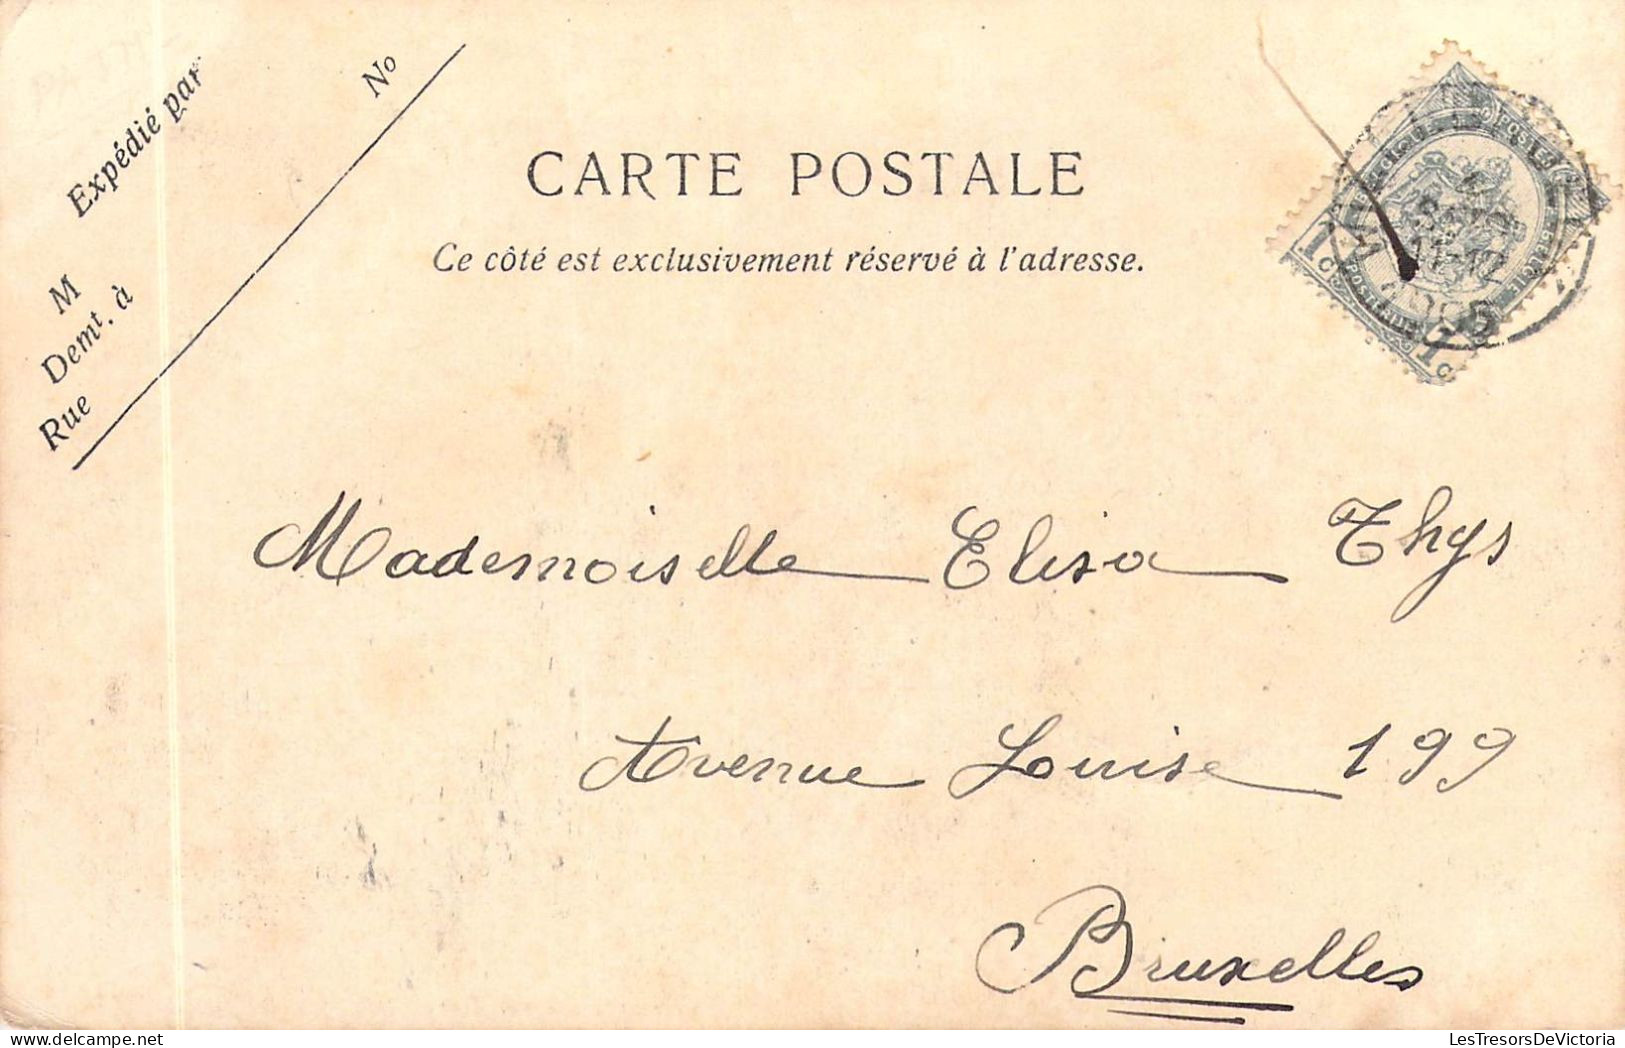 Expédié par
No
M
Demt. à
Rue
CARTE POSTALE
Ce côté est exclusivement réservé à l'adresse.
1c
1c
1905
Mademoiselle Elisa Thys
Avenue Louise 199
Bruxelles
LesTresorsDeVictoria